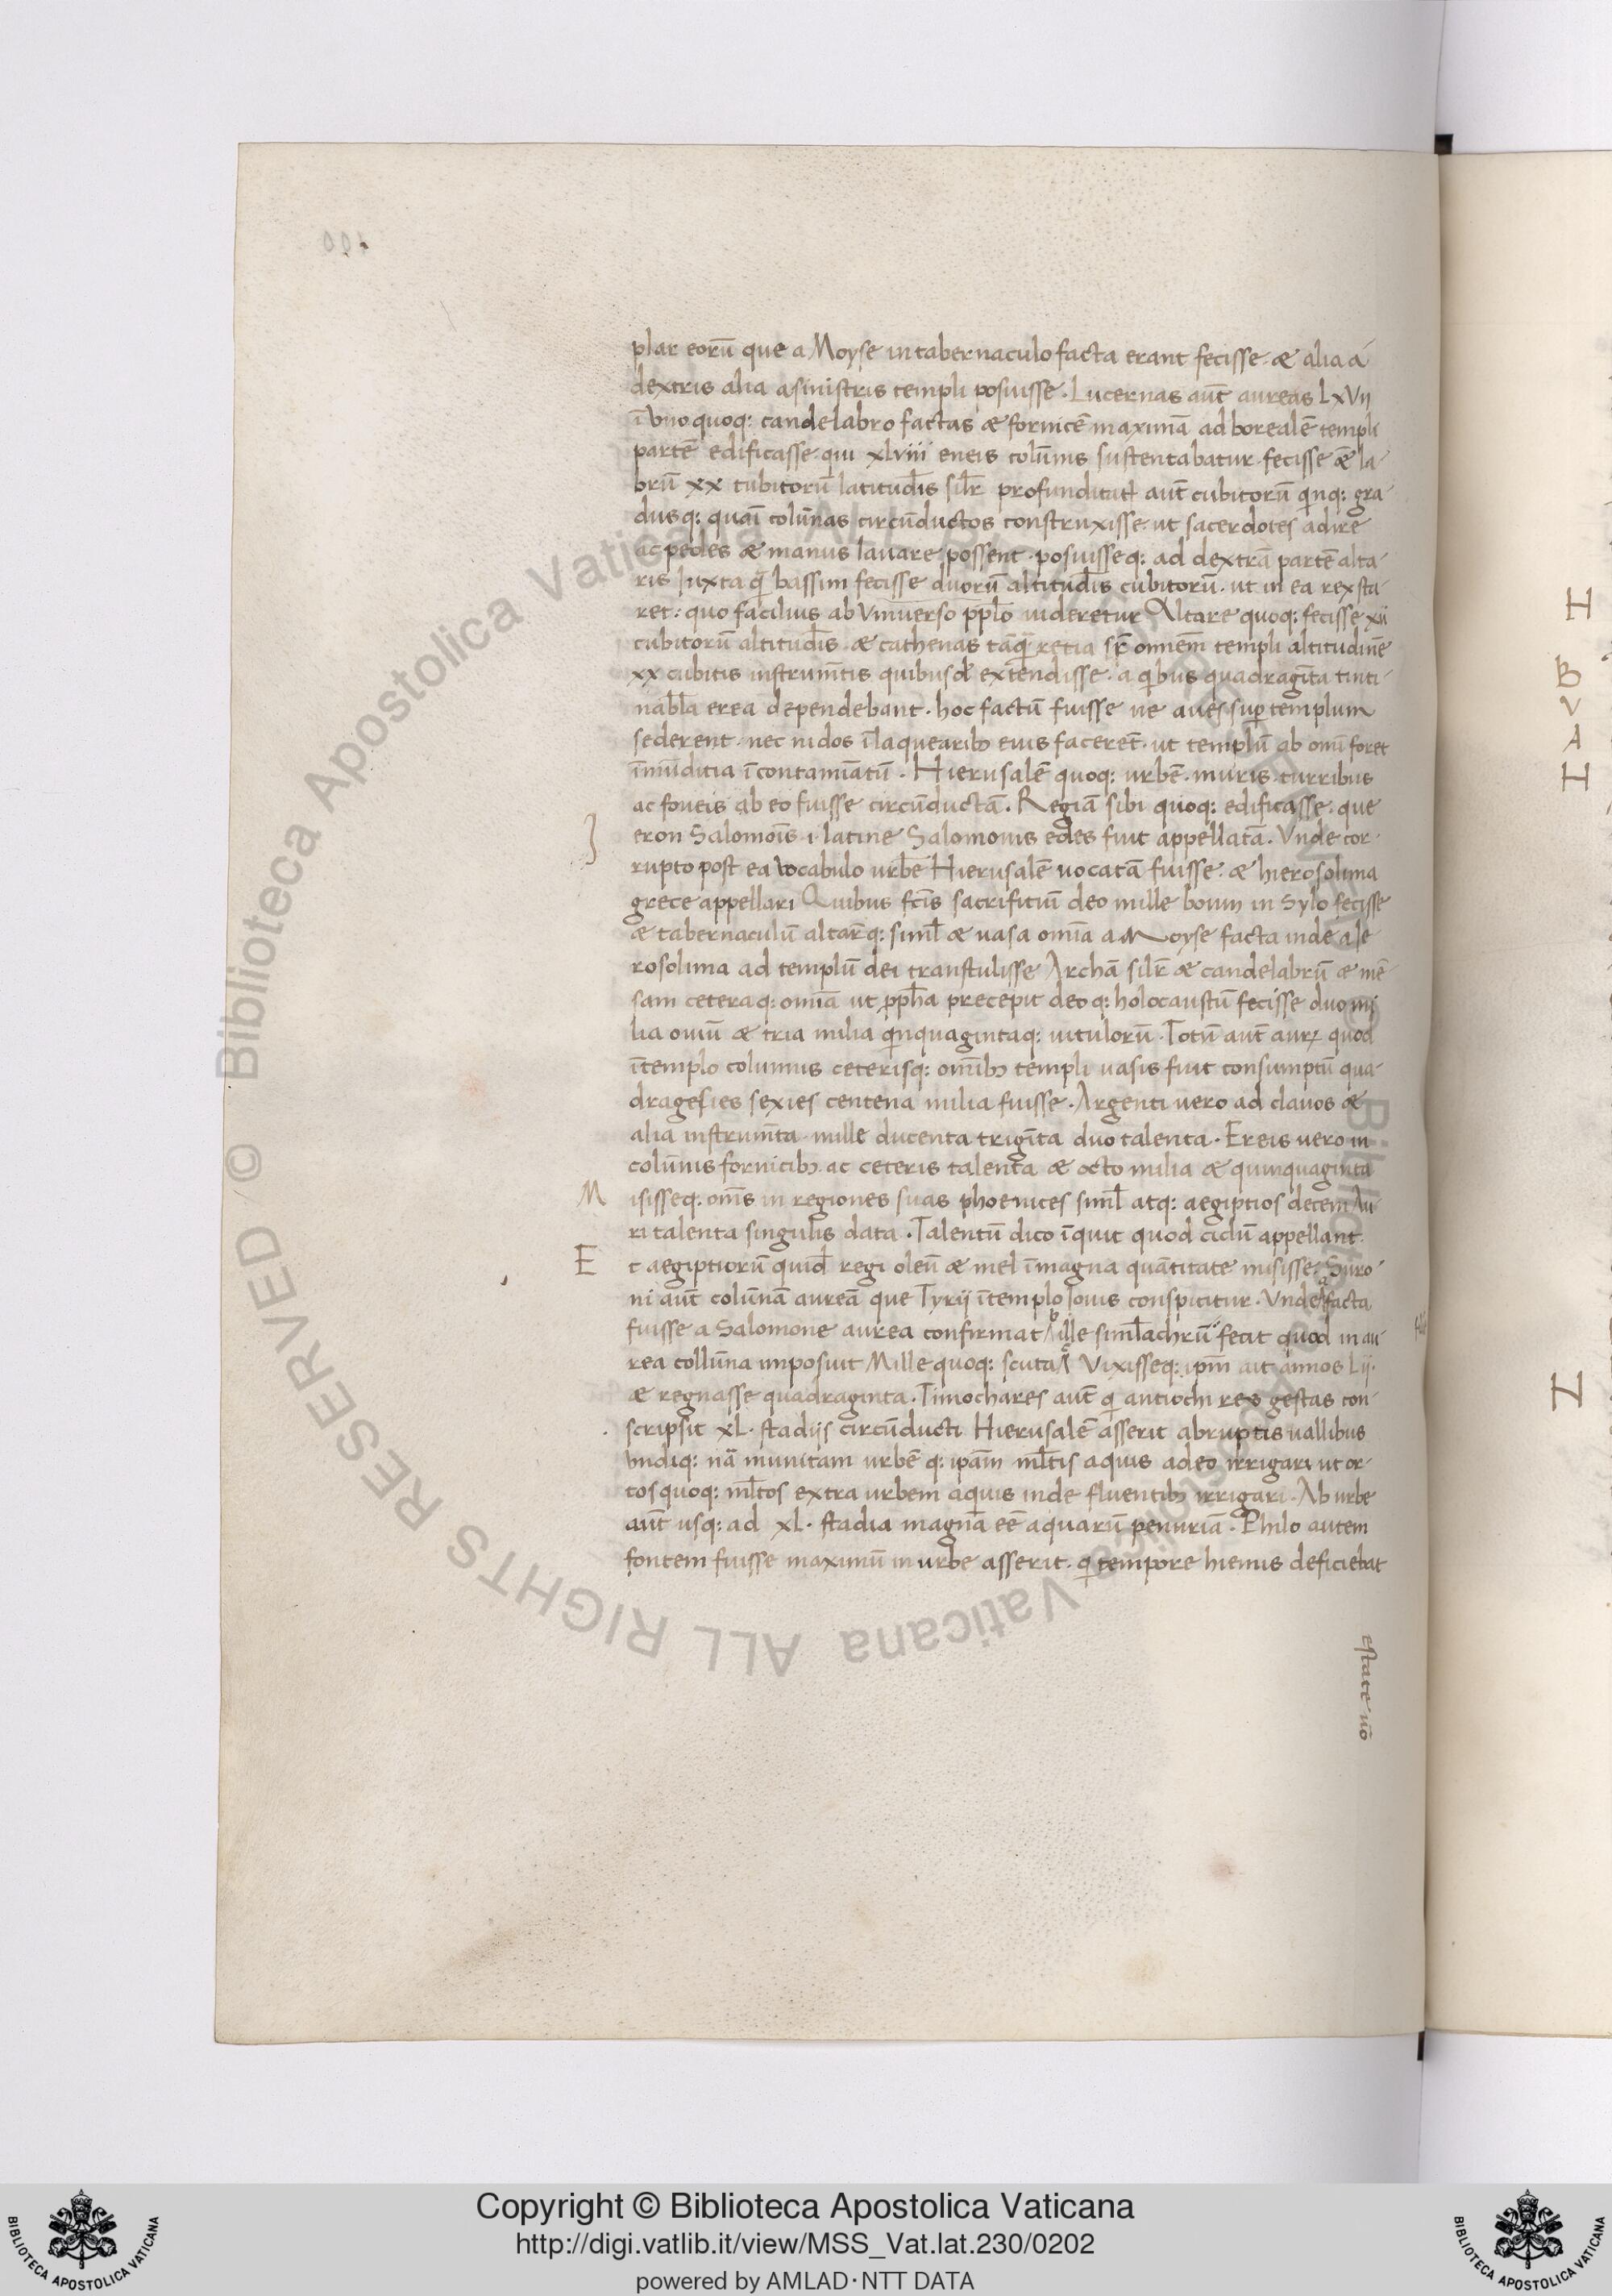 plar eorū que a Moyse in tabernaculo facta erant fecisse. æ alia a
dextris alia a sinistris templi posuisse. Lucernas aūt aureas LXVII
ī vno quoq: candelabro factas æ fornicē maximā ad borealē templi
partē edificasse. qui xlviii eneis colūnis sustentabatur. fecisse æ la-
brū xx cubitorū latitudīs silr̄ profunditat̄ aūt cubitorū qīnq: gra-
dusq: colūnas circūductos construxisse. ut sacerdotes adire
ac pedes æ manus lavare possent. posuisseq: ad dextrā partē alta-
ris Iuxta bassim fecisse duorū altitudīs cubitorū. ut in ea rex sta-
ret: quo facilius ab Vniverso pp̄lo videretur Altare quoq: fecisse xii
cubitorū altitudīs. æ cathenas tāq̄ retia sr̄ omnem templi altitudinē
xx cubitis instrum̄tis quibusd̄ extendisse. a qibus quadragīta tinti-
nabl̄a erea dependebant. hoc factū fuisse ne aves sup templum
sederent. nec nidos ī laquearib; eius faceret̄. ut templū ab omī foret
īmūditia īcontamīatū. Hierusalē quoq: urbē. muris. turribus
ac foveis ab eo fuisse circūductā. Regiā sibi quoq: edificasse. que
I eron Salomoīs .i. latine Salomonis edes fuit appellata. Vnde cor-
rupto post ea vocabulo urbē Hierusalē uocatā fuisse. æ hierosolima
grece appellari Quibus fc̄is sacrifitiū deo mille boum in Sylo fecisse
æ tabernaculū altar̄q: siml̄ æ uasa omīa a Moyse facta inde a Ie
rosolima ad templū dei transtulisse Archā silr̄ æ candelabrū æ mē
sam ceteraq: omīa ut pp̄ha precepit deoq: holocaustū fecisse duo mi
lia oviū æ tria milia qinquagintaq: uitulorū. Totū aūt aurꝝ quod
ī templo columnis ceterisq: omīb; templi vasis fuit consumptū qua-
dragesies sexies centena milia fuisse. Argenti vero ad clavos æ
alia instrum̄ta. mille ducenta trigīta duo talenta. Ereis vero in
colūnis fornicib; ac ceteris talenta æ octo milia æ quinquaginta
M isisseq: om̄s in regiones suas phoenices siml̄ atq: aegiptios decem Au
ri talenta singulis data. Talentū dico īquit quod cidū appellant.
E t aegiptiorū quid̄ regi oleū æ mel ī magna quātitate misisse. Suro-
ni aūt colūnā aureā que Tyrij ī templo Iovis conspicitur. Vnde facta
fuisse a Salomone aurea confirmat ille siml̄achrū fecit quod in au
rea collūna imposuit Mille quoq: scuta Vixisseq: ip̄m ait annos Lii.
æ regnasse quadraginta. Timochares aūt q antiochi res gestas con-
scripsit XL. stadijs circūducti Hierusalē asserit abruptis uallibus
vndiq: nā munitam urbē q: ip̄am ml̄tis aquis adeo irrigari ut or-
tos quoq: ml̄tos extra urbem aquis inde fluentib; irrigari. Ab urbe
aūt usq: ad XL. stadia magnā eē aquarū penuriā. Philo autem
fontem fuisse maximū in urbe asserit. q tempore hiemis deficiebat
estate uō
H
B
V
A
H
N
Copyright © Biblioteca Apostolica Vaticana
http://digi.vatlib.it/view/MSS_Vat.lat.230/0202
powered by AMLAD·NTT DATA
BIBLIOTECA APOSTOLICA VATICANA
BIBLIOTECA APOSTOLICA VATICANA
© Biblioteca Apostolica Vaticana ALL RIGHTS RESERVED